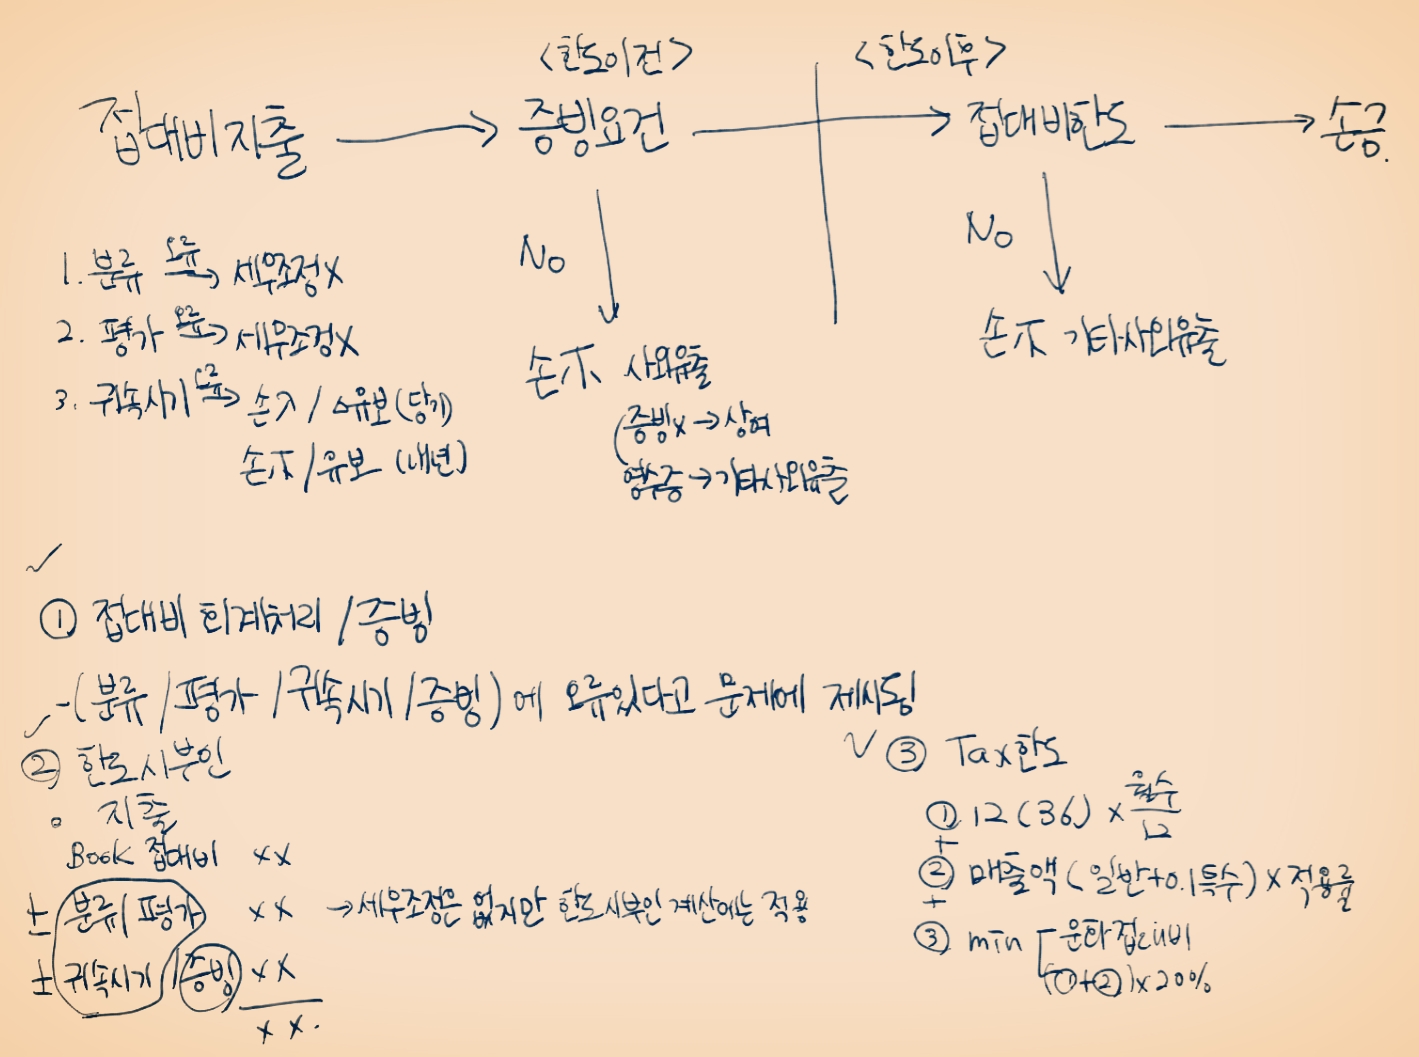 <한도이전> <한도이후>
접대비지출 → 증빙요건 → 접대비한도 → 손금.
No
No
1. 분류 오류→ 세무조정X
2. 평가 오류→ 세무조정X
3. 귀속시기 오류→ 손入 / △유보 (당기)
손不 / 유보 (내년)
손不 사외유출
(증빙x → 상여
영수증 → 기타사외유출
손不 기타사외유출
① 접대비 회계처리 / 증빙
- (분류 / 평가 / 귀속시기 / 증빙) 에 오류있다고 문제에 제시됨
② 한도시부인
지출
Book 접대비 xx
± 분류/평가 xx → 세무조정은 없지만 한도시부인 계산에는 적용
± 귀속시기 / 증빙 xx
xx.
③ Tax한도
① 12 (36) × 월수/12
+
② 매출액 (일반+0.1특수) × 적용률
+
③ min 문화접대비
(①+②)×20%